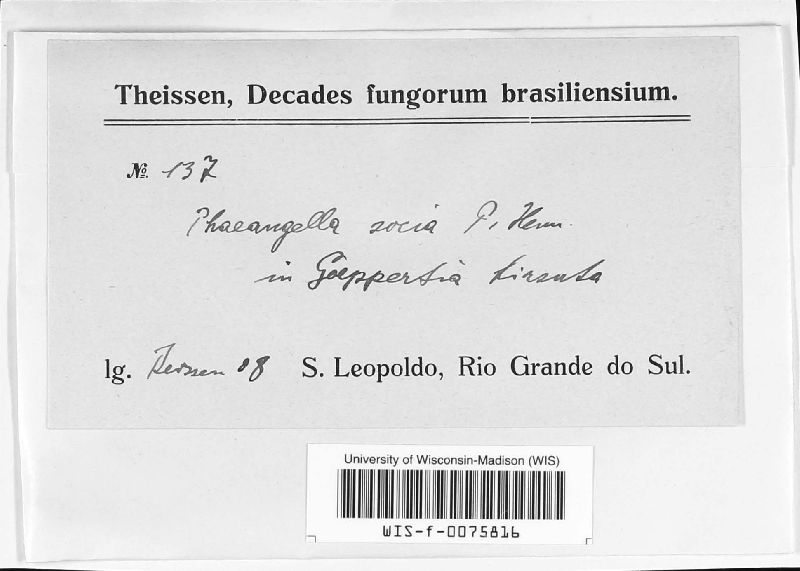 Theissen, Decades fungorum brasiliensium.
№. 137
Phaeangella socia P. Henn.
in Goeppertia hirsuta
lg. Theissen 08 S. Leopoldo, Rio Grande do Sul.
University of Wisconsin-Madison (WIS)
WIS-f-0075816